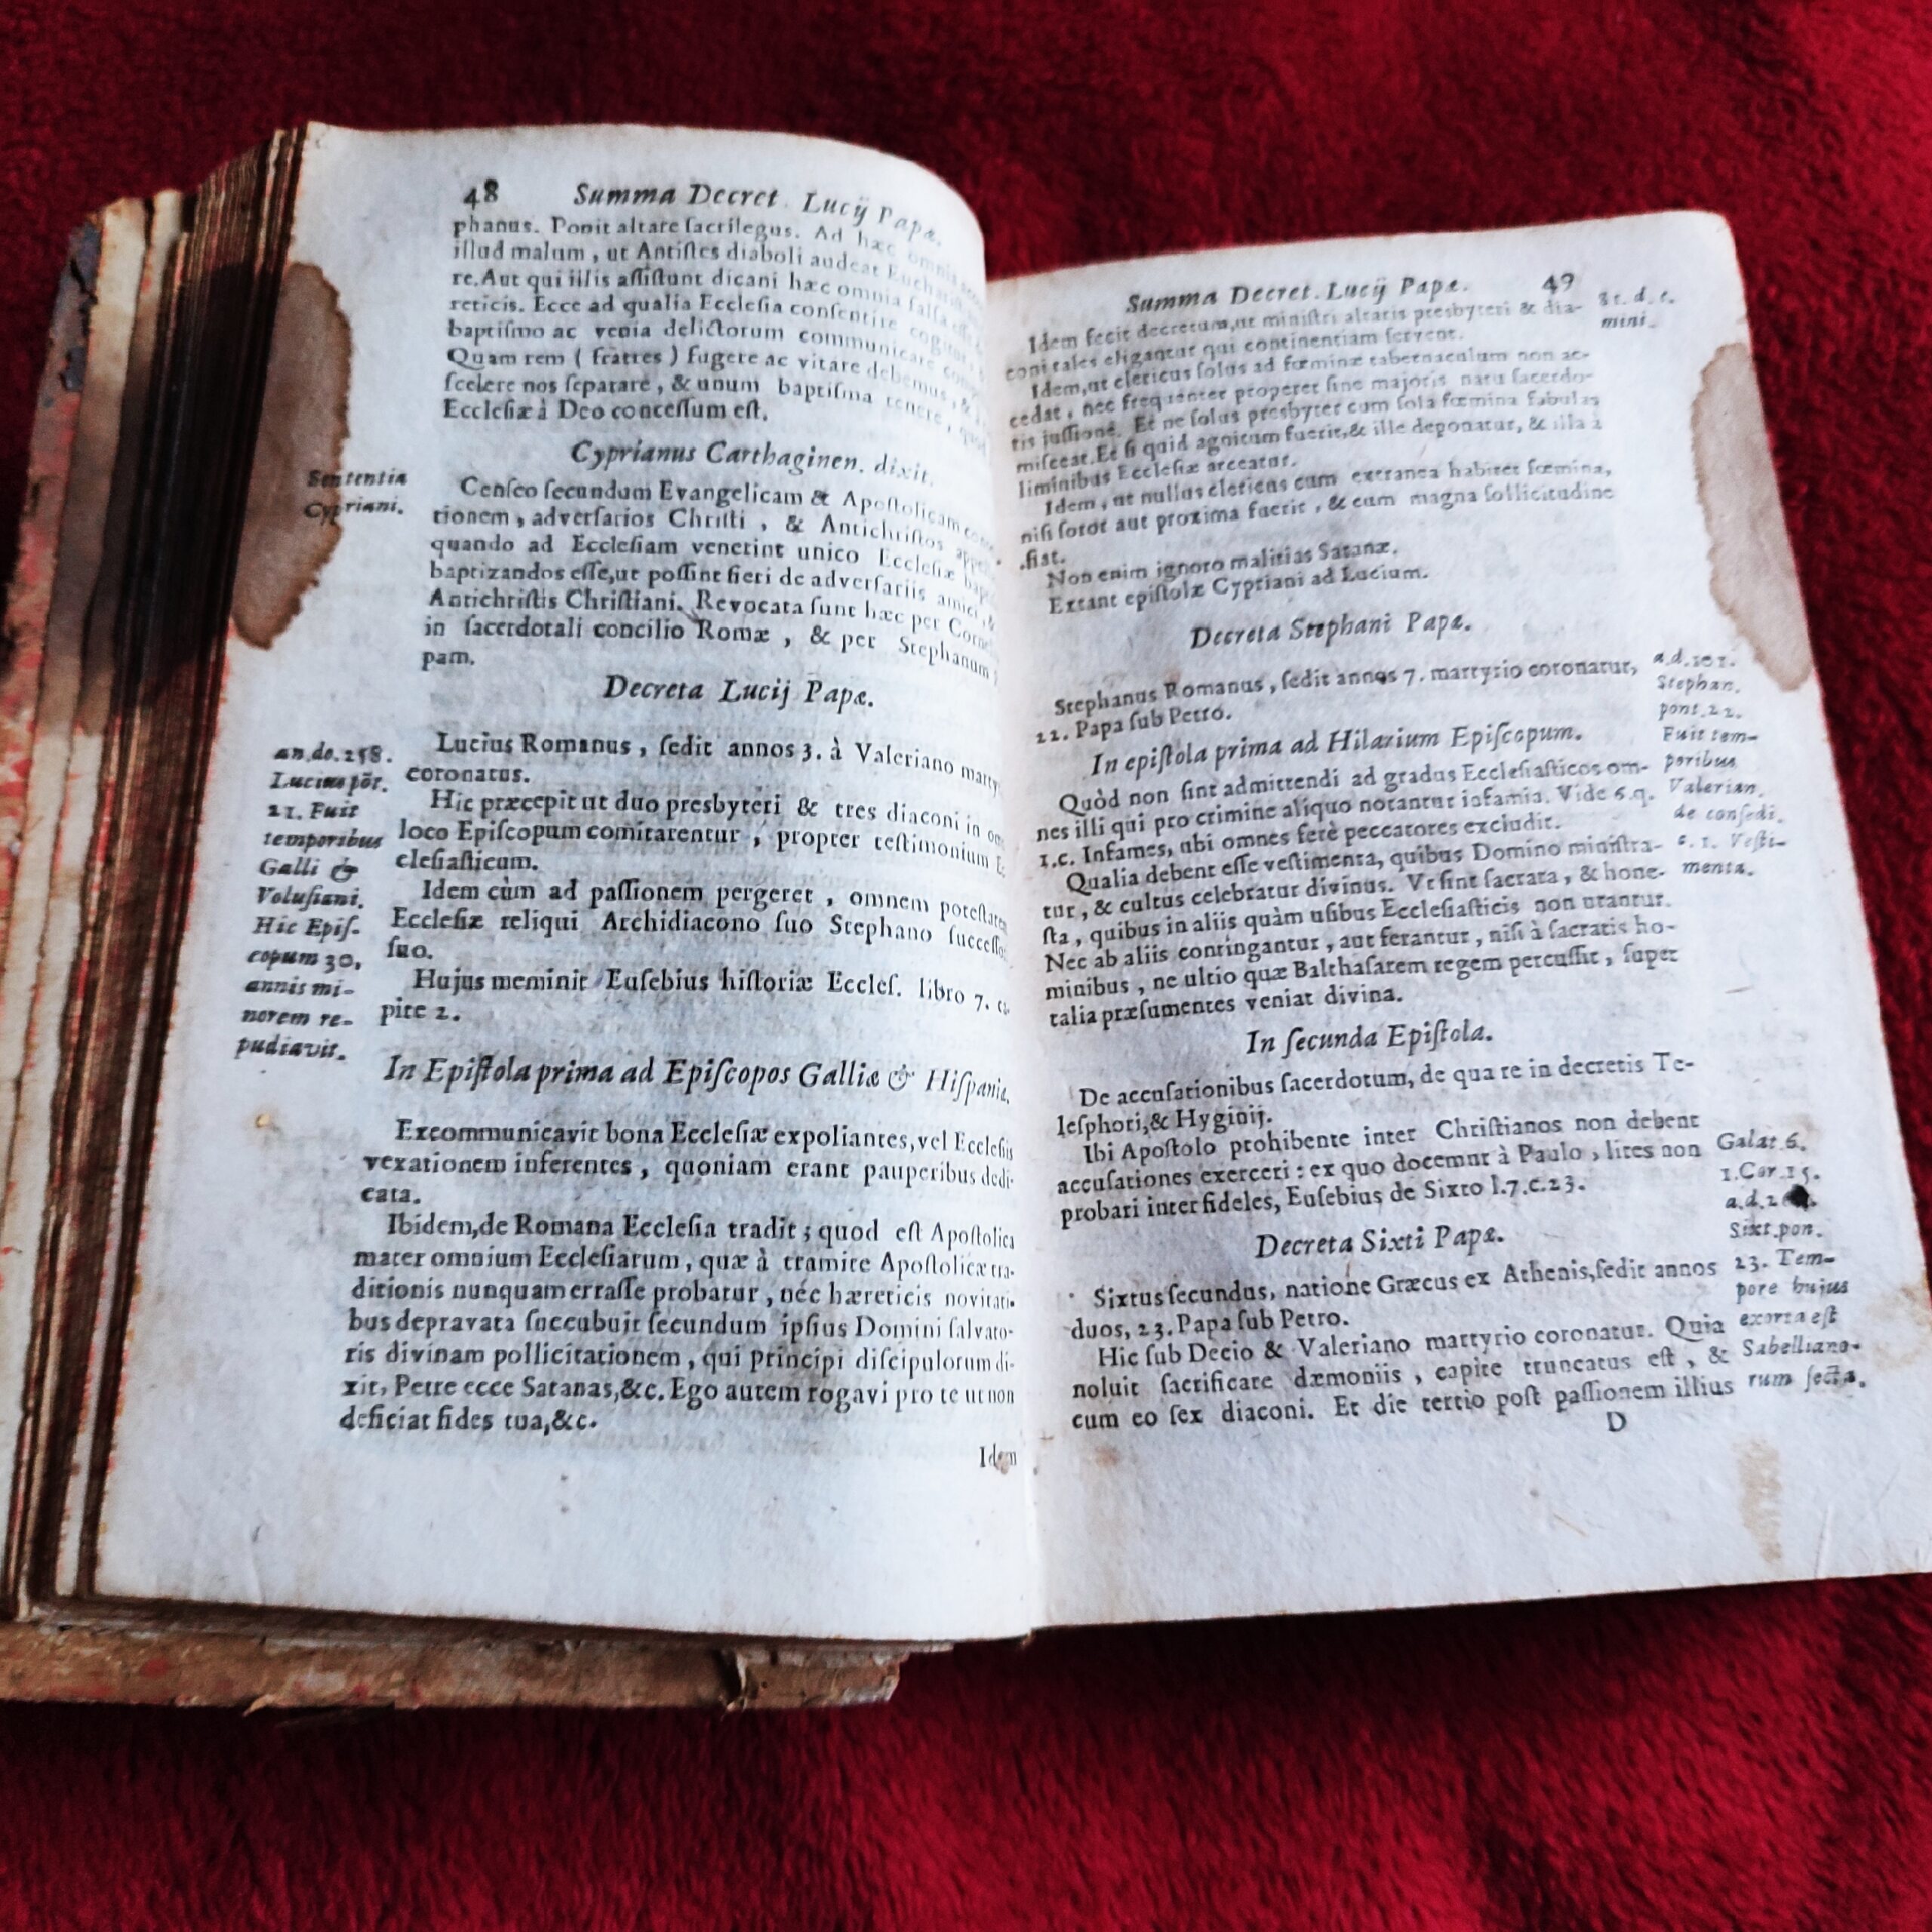 48 Summa Decret. Lucij Papæ.
phanus. Ponit altare ſacrilegus. Ad hæc omnia
illud malum, ut Antiſtes diaboli audeat
re. Aut qui illis aſſiſtunt dicani hæc omnia falſa
reticis. Ecce ad qualia Eccleſia conſentire cogitur
baptiſmo ac venia delictorum communicare
Quam rem (fratres) fugere ac vitare debemus, &
ſcelere nos ſeparare, & unum baptiſma tenere, quod
Eccleſiæ à Deo conceſſum eſt.
Cyprianus Carthaginen. dixit.
Sententia
Cypriani.
Cenſeo ſecundum Evangelicam & Apoſtolicam
tionem, adverſarios Chriſti, & Antichriſtos
quando ad Eccleſiam venerint unico Eccleſiæ
baptizandos eſſe, ut poſſint fieri de adverſariis amici, &
Antichriſtis Chriſtiani. Revocata ſunt hæc per
in ſacerdotali concilio Romæ, & per Stephanum
pam.
Decreta Lucij Papæ.
an. do. 258.
Lucius põt.
21. Fuit
temporibus
Galli &
Voluſiani.
Hic Epiſ-
copum 30,
annis mi-
norem re-
pudiavit.
Lucius Romanus, ſedit annos 3. à Valeriano
coronatus.
Hic præcepit ut duo presbyteri & tres diaconi in
loco Epiſcopum comitarentur, propter teſtimonium
cleſiaſticum.
Idem cùm ad paſſionem pergeret, omnem poteſtatem
Eccleſiæ reliqui Archidiacono ſuo Stephano
ſuo.
Hujus meminit Euſebius hiſtoriæ Eccleſ. libro 7.
pite 2.
In Epiſtola prima ad Epiſcopos Galliæ & Hiſpaniæ.
Excommunicavit bona Eccleſiæ expoliantes, vel Eccleſiis
vexationem inferentes, quoniam erant pauperibus dedi-
cata.
Ibidem, de Romana Eccleſia tradit; quod eſt Apoſtolica
mater omnium Eccleſiarum, quæ à tramite Apoſtolicæ tra-
ditionis nunquam erraſſe probatur, néc hæreticis novitati-
bus depravata ſuccubuit ſecundum ipſius Domini ſalvato-
ris divinam pollicitationem, qui principi diſcipulorum di-
xit, Petre ecce Satanas, &c. Ego autem rogavi pro te ut non
deficiat fides tua, &c.
Idem
Summa Decret. Lucij Papæ. 49
mini.
Idem fecit decretum, ut miniſtri altaris presbyteri & dia-
coni tales eligantur qui continentiam ſervent.
Idem, ut clericus ſolus ad fœminæ tabernaculum non ac-
cedat, nec frequenter properet ſine majoris natu ſacerdo-
tis juſſione. Et ne ſolus presbyter cum ſola fœmina fabulas
miſceat. Et ſi quid agnitum fuerit, & ille deponatur, & illa à
liminibus Eccleſiæ arceatur.
Idem, ut nullus clericus cum extranea habitet fœmina,
niſi ſoror aut proxima fuerit, & cum magna ſollicitudine
fiat.
Non enim ignoro malitias Satanæ.
Extant epiſtolæ Cypriani ad Lucium.
Decreta Stephani Papæ.
Stephan.
pont. 22.
Fuit tem-
poribus
Valerian.
de conſedi.
c. 1. Veſti-
menta.
Stephanus Romanus, ſedit annos 7. martyrio coronatur,
22. Papa ſub Petro.
In epiſtola prima ad Hilarium Epiſcopum.
Quòd non ſint admittendi ad gradus Eccleſiaſticos om-
nes illi qui pro crimine aliquo notantur infamia. Vide 6. q.
1. c. Infames, ubi omnes ferè peccatores excludit.
Qualia debent eſſe veſtimenta, quibus Domino miniſtra-
tur, & cultus celebratur divinus. Vt ſint ſacrata, & hone-
ſta, quibus in aliis quàm uſibus Eccleſiaſticis non utantur.
Nec ab aliis contingantur, aut ferantur, niſi à ſacratis ho-
minibus, ne ultio quæ Balthaſarem regem percuſſit, ſuper
talia præſumentes veniat divina.
In ſecunda Epiſtola.
De accuſationibus ſacerdotum, de qua re in decretis Te-
leſphori, & Hyginij.
Ibi Apoſtolo prohibente inter Chriſtianos non debent
accuſationes exerceri: ex quo docemur à Paulo, lites non
probari inter fideles, Euſebius de Sixto l. 7. c. 23.
Galat. 6.
1. Cor. 15.
Sixt. pon.
23. Tem-
pore hujus
exorta eſt
Sabelliano-
rum ſecta.
Decreta Sixti Papæ.
Sixtus ſecundus, natione Græcus ex Athenis, ſedit annos
duos, 23. Papa ſub Petro.
Hic ſub Decio & Valeriano martyrio coronatur. Quia
noluit ſacrificare dæmoniis, capite truncatus eſt, &
cum eo ſex diaconi. Et die tertio poſt paſſionem illius
D